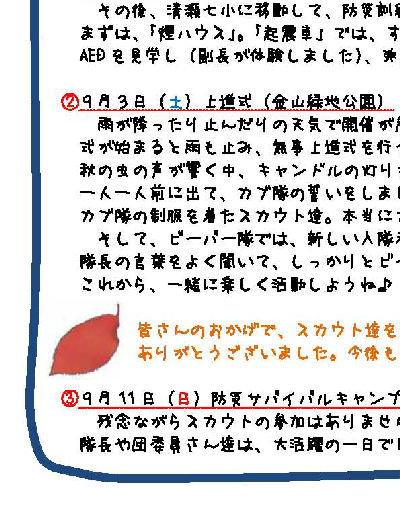 その後、清瀬七小に移動して、防災訓練
まずは、「煙ハウス」。「起震車」では、す
AEDを見学し（副長が体験しました）、炊
②9月3日（土）上進式（金山緑地公園）
雨が降ったり止んだりの天気で開催が危
式が始まると雨も止み、無事上進式を行
秋の虫の声が響く中、キャンドルの灯り
一人一人前に出て、カブ隊の誓いをしま
カブ隊の制服を着たスカウト達。本当に
そして、ビーバー隊では、新しい入隊
隊長の言葉をよく聞いて、しっかりとビ
これから、一緒に楽しく活動しようね♪
皆さんのおかげで、スカウト達を
ありがとうございました。今後も
③9月11日（日）防災サバイバルキャンプ
残念ながらスカウトの参加はありませ
隊長や団委員さん達は、大活躍の一日で